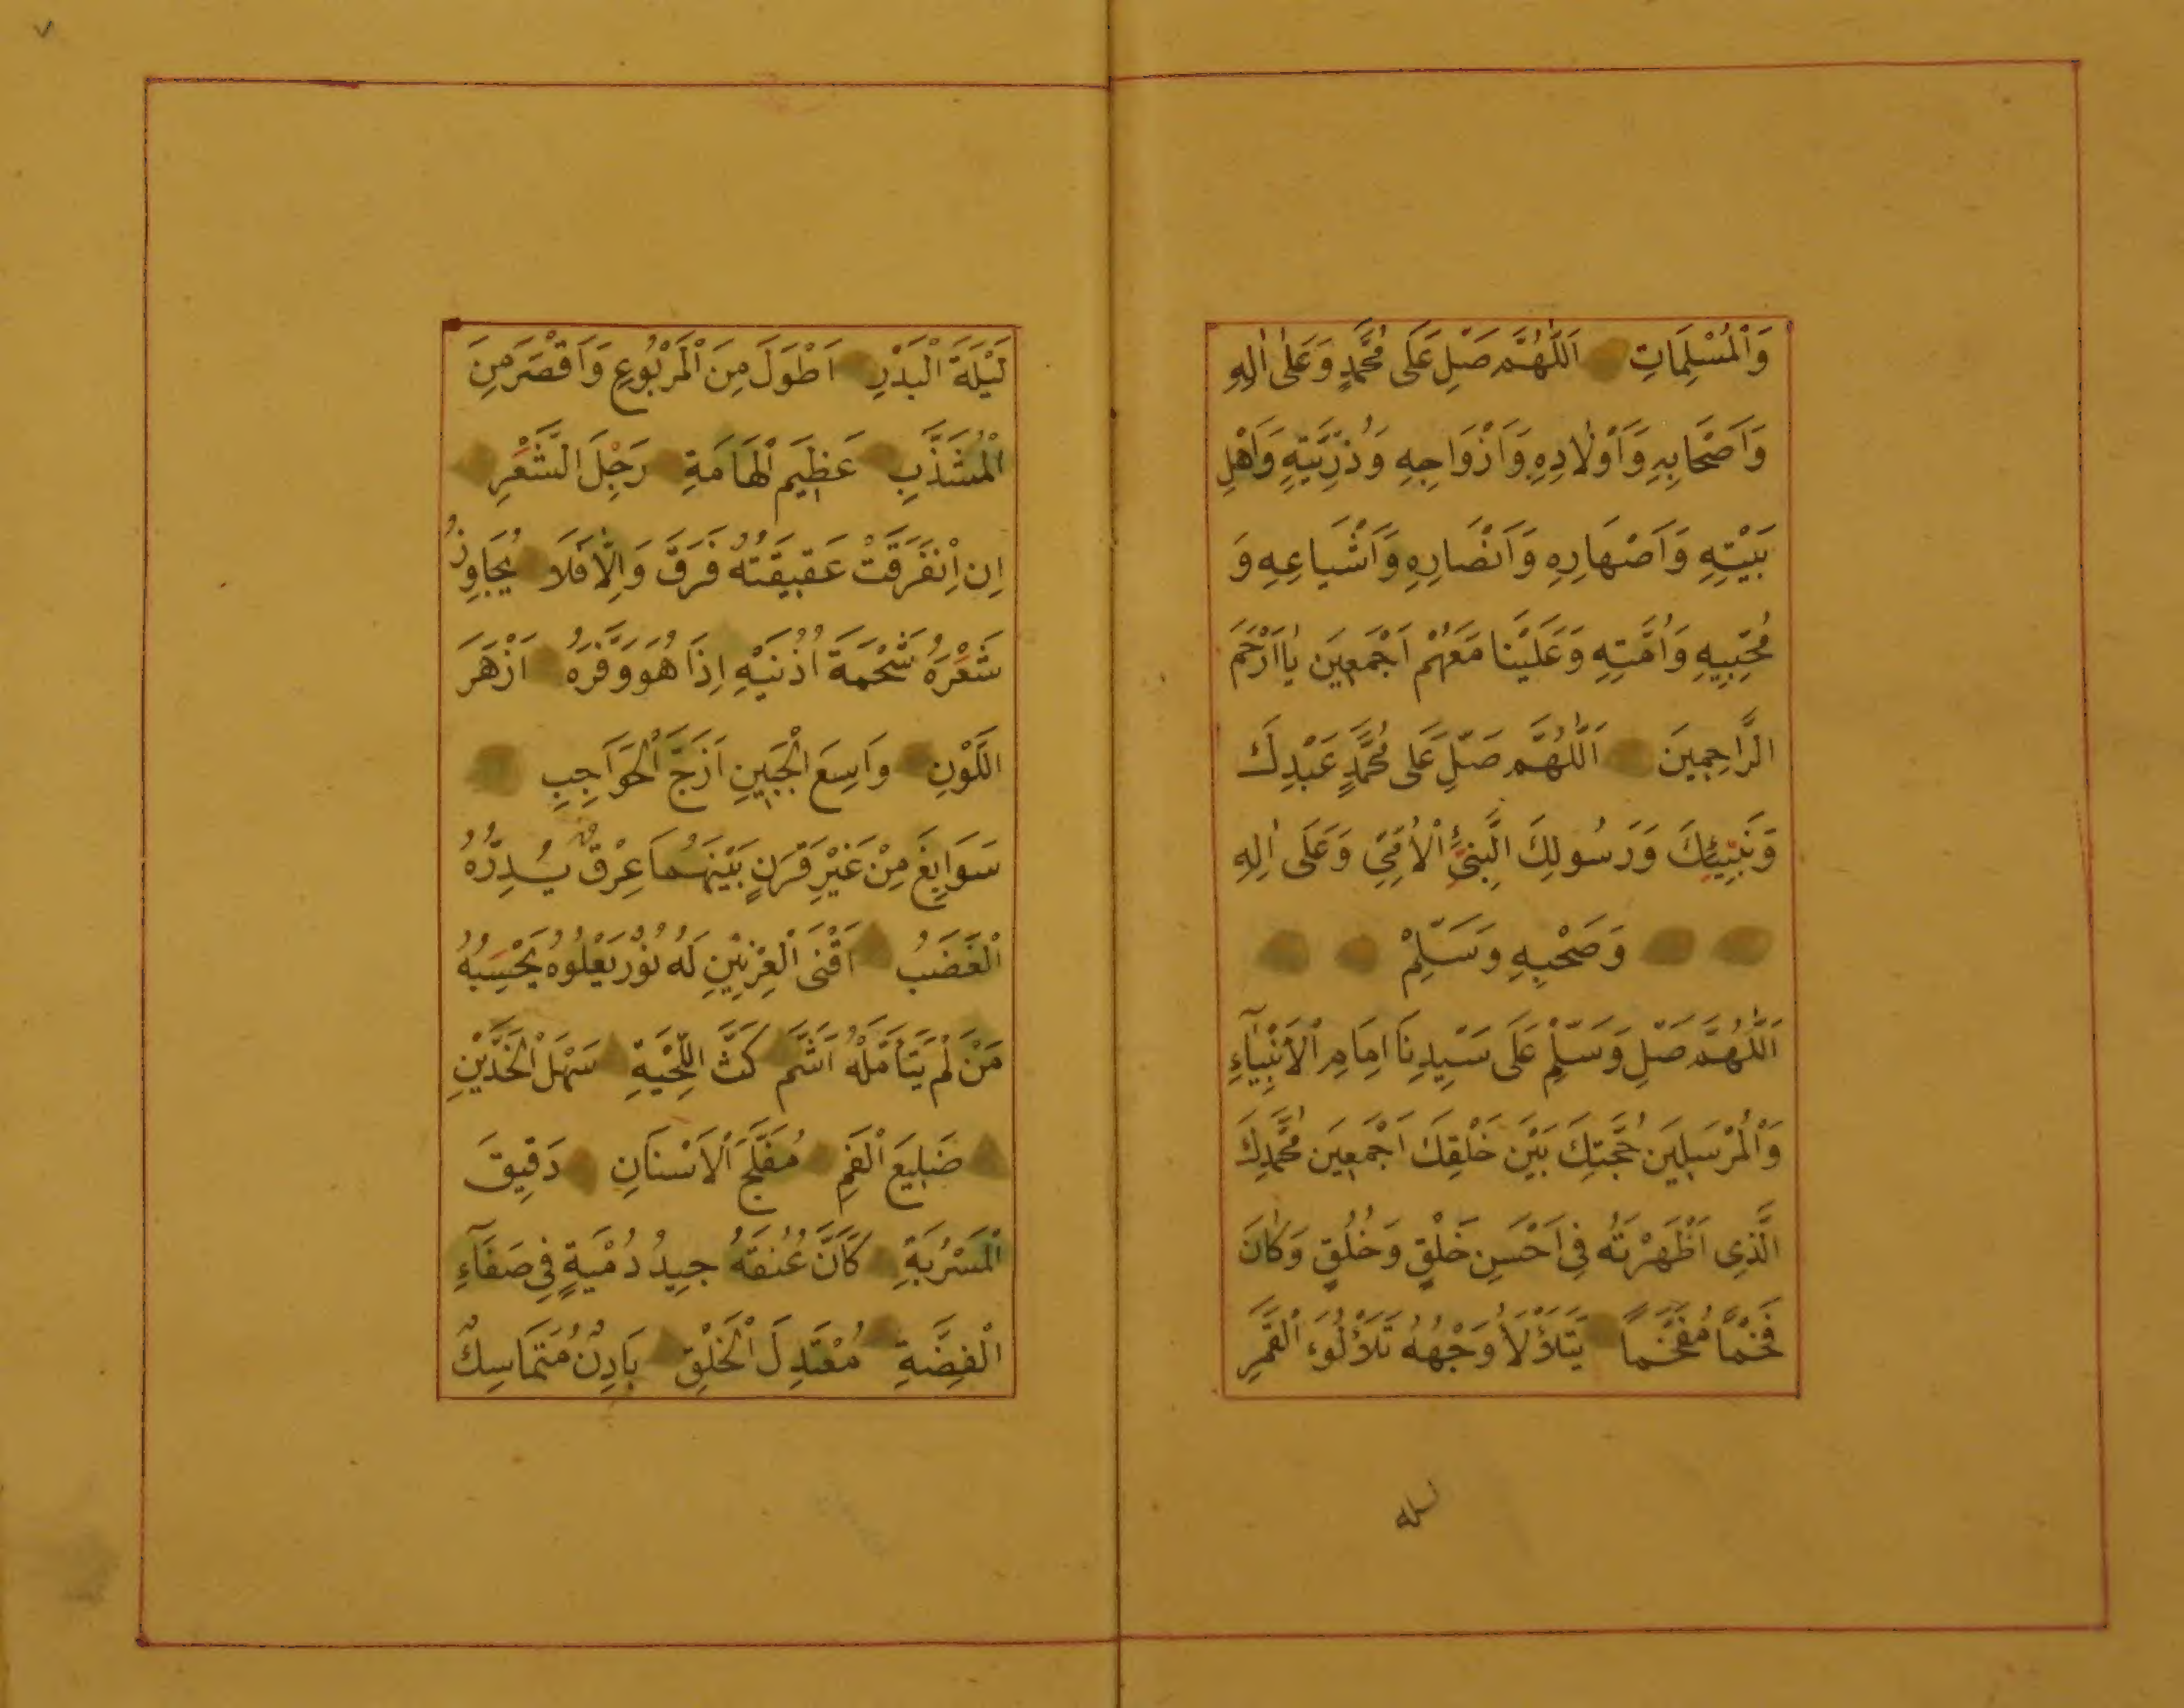 وَالْمُسْلِمَاتِ اَللّٰهُمَّ صَلِّ عَلَى مُحَمَّدٍ وَعَلٰى اٰلِهِ
وَاَصْحَابِهِ وَاَوْلَادِهِ وَاَزْوَاجِهِ وَذُرِّيَّتِهِ وَاَهْلِ
بَيْتِهِ وَاَصْهَارِهِ وَاَنْصَارِهِ وَاَشْيَاعِهِ وَ
مُحِبِّيهِ وَاُمَّتِهِ وَعَلَيْنَا مَعَهُمْ اَجْمَعِينَ يَا اَرْحَمَ
الرَّاحِمِينَ اَللّٰهُمَّ صَلِّ عَلَى مُحَمَّدٍ عَبْدِكَ
وَنَبِيِّكَ وَرَسُولِكَ النَّبِيِّ الْاُمِّيِّ وَعَلَى اٰلِهِ
وَصَحْبِهِ وَسَلِّمْ
اَللّٰهُمَّ صَلِّ وَسَلِّمْ عَلَى سَيِّدِنَا اِمَامِ الْاَنْبِيَآءِ
وَالْمُرْسَلِينَ حُجَّتِكَ بَيْنَ خَلْقِكَ اَجْمَعِينَ مُحَمَّدِكَ
الَّذِى اَظْهَرْتَهُ فِى اَحْسَنِ خَلْقٍ وَخُلُقٍ وَكَانَ
فَخْمًا مُفَخَّمًا يَتَلَأْلَأُ وَجْهُهُ تَلَأْلُؤَ الْقَمَرِ
ليله
لَيْلَةَ الْبَدْرِ اَطْوَلَ مِنَ الْمَرْبُوعِ وَاَقْصَرَ مِنَ
الْمُشَذَّبِ عَظِيمَ الْهَامَةِ رَجِلَ الشَّعْرِ
اِنِ انْفَرَقَتْ عَقِيقَتُهُ فَرَقَ وَاِلَّا فَلَا يُجَاوِزُ
شَعْرُهُ شَحْمَةَ اُذُنَيْهِ اِذَا هُوَ وَفَّرَهُ اَزْهَرَ
اللَّوْنِ وَاسِعَ الْجَبِينِ اَزَجَّ الْحَوَاجِبِ
سَوَابِغَ مِنْ غَيْرِ قَرَنٍ بَيْنَهُمَا عِرْقٌ يُدِرُّهُ
الْغَضَبُ اَقْنَى الْعِرْنِينِ لَهُ نُورٌ يَعْلُوهُ يَحْسِبُهُ
مَنْ لَمْ يَتَأَمَّلْهُ اَشَمَّ كَثَّ اللِّحْيَةِ سَهْلَ الْخَدَّيْنِ
ضَلِيعَ الْفَمِ مُفَلَّجَ الْاَسْنَانِ دَقِيقَ
الْمَسْرُبَةِ كَاَنَّ عُنُقَهُ جِيدُ دُمْيَةٍ فِى صَفَآءِ
الْفِضَّةِ مُعْتَدِلَ الْخَلْقِ بَادِنٌ مُتَمَاسِكٌ